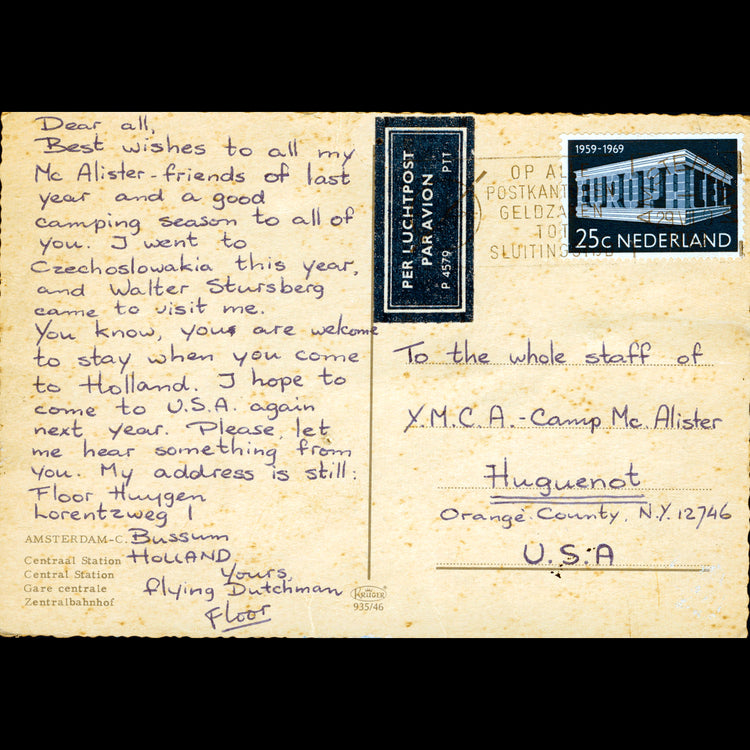 Dear all,
Best wishes to all my
Mc Alister-friends of last
year and a good
camping season to all of
you. I went to
Czechoslowakia this year,
and Walter Stursberg
came to visit me.
You know, yous are welcome
to stay when you come
to Holland. I hope to
come to U.S.A. again
next year. Please, let
me hear something from
you. My address is still:
Floor Huygen
Lorentzweg 1
Bussum
HOLLAND
Yours,
flying Dutchman
Floor
AMSTERDAM-C.
Centraal Station
Central Station
Gare centrale
Zentralbahnhof
KRÜGER
935/46
PER LUCHTPOST
PAR AVION
P 4579 PTT
OP AL
POSTKANT
GELDZA EN
TOT
SLUITINGS
1959-1969
EUROPA CEPT
25c NEDERLAND
To the whole staff of
Y.M.C.A.-Camp Mc. Alister
Huguenot
Orange County, N.Y. 12746
U.S.A